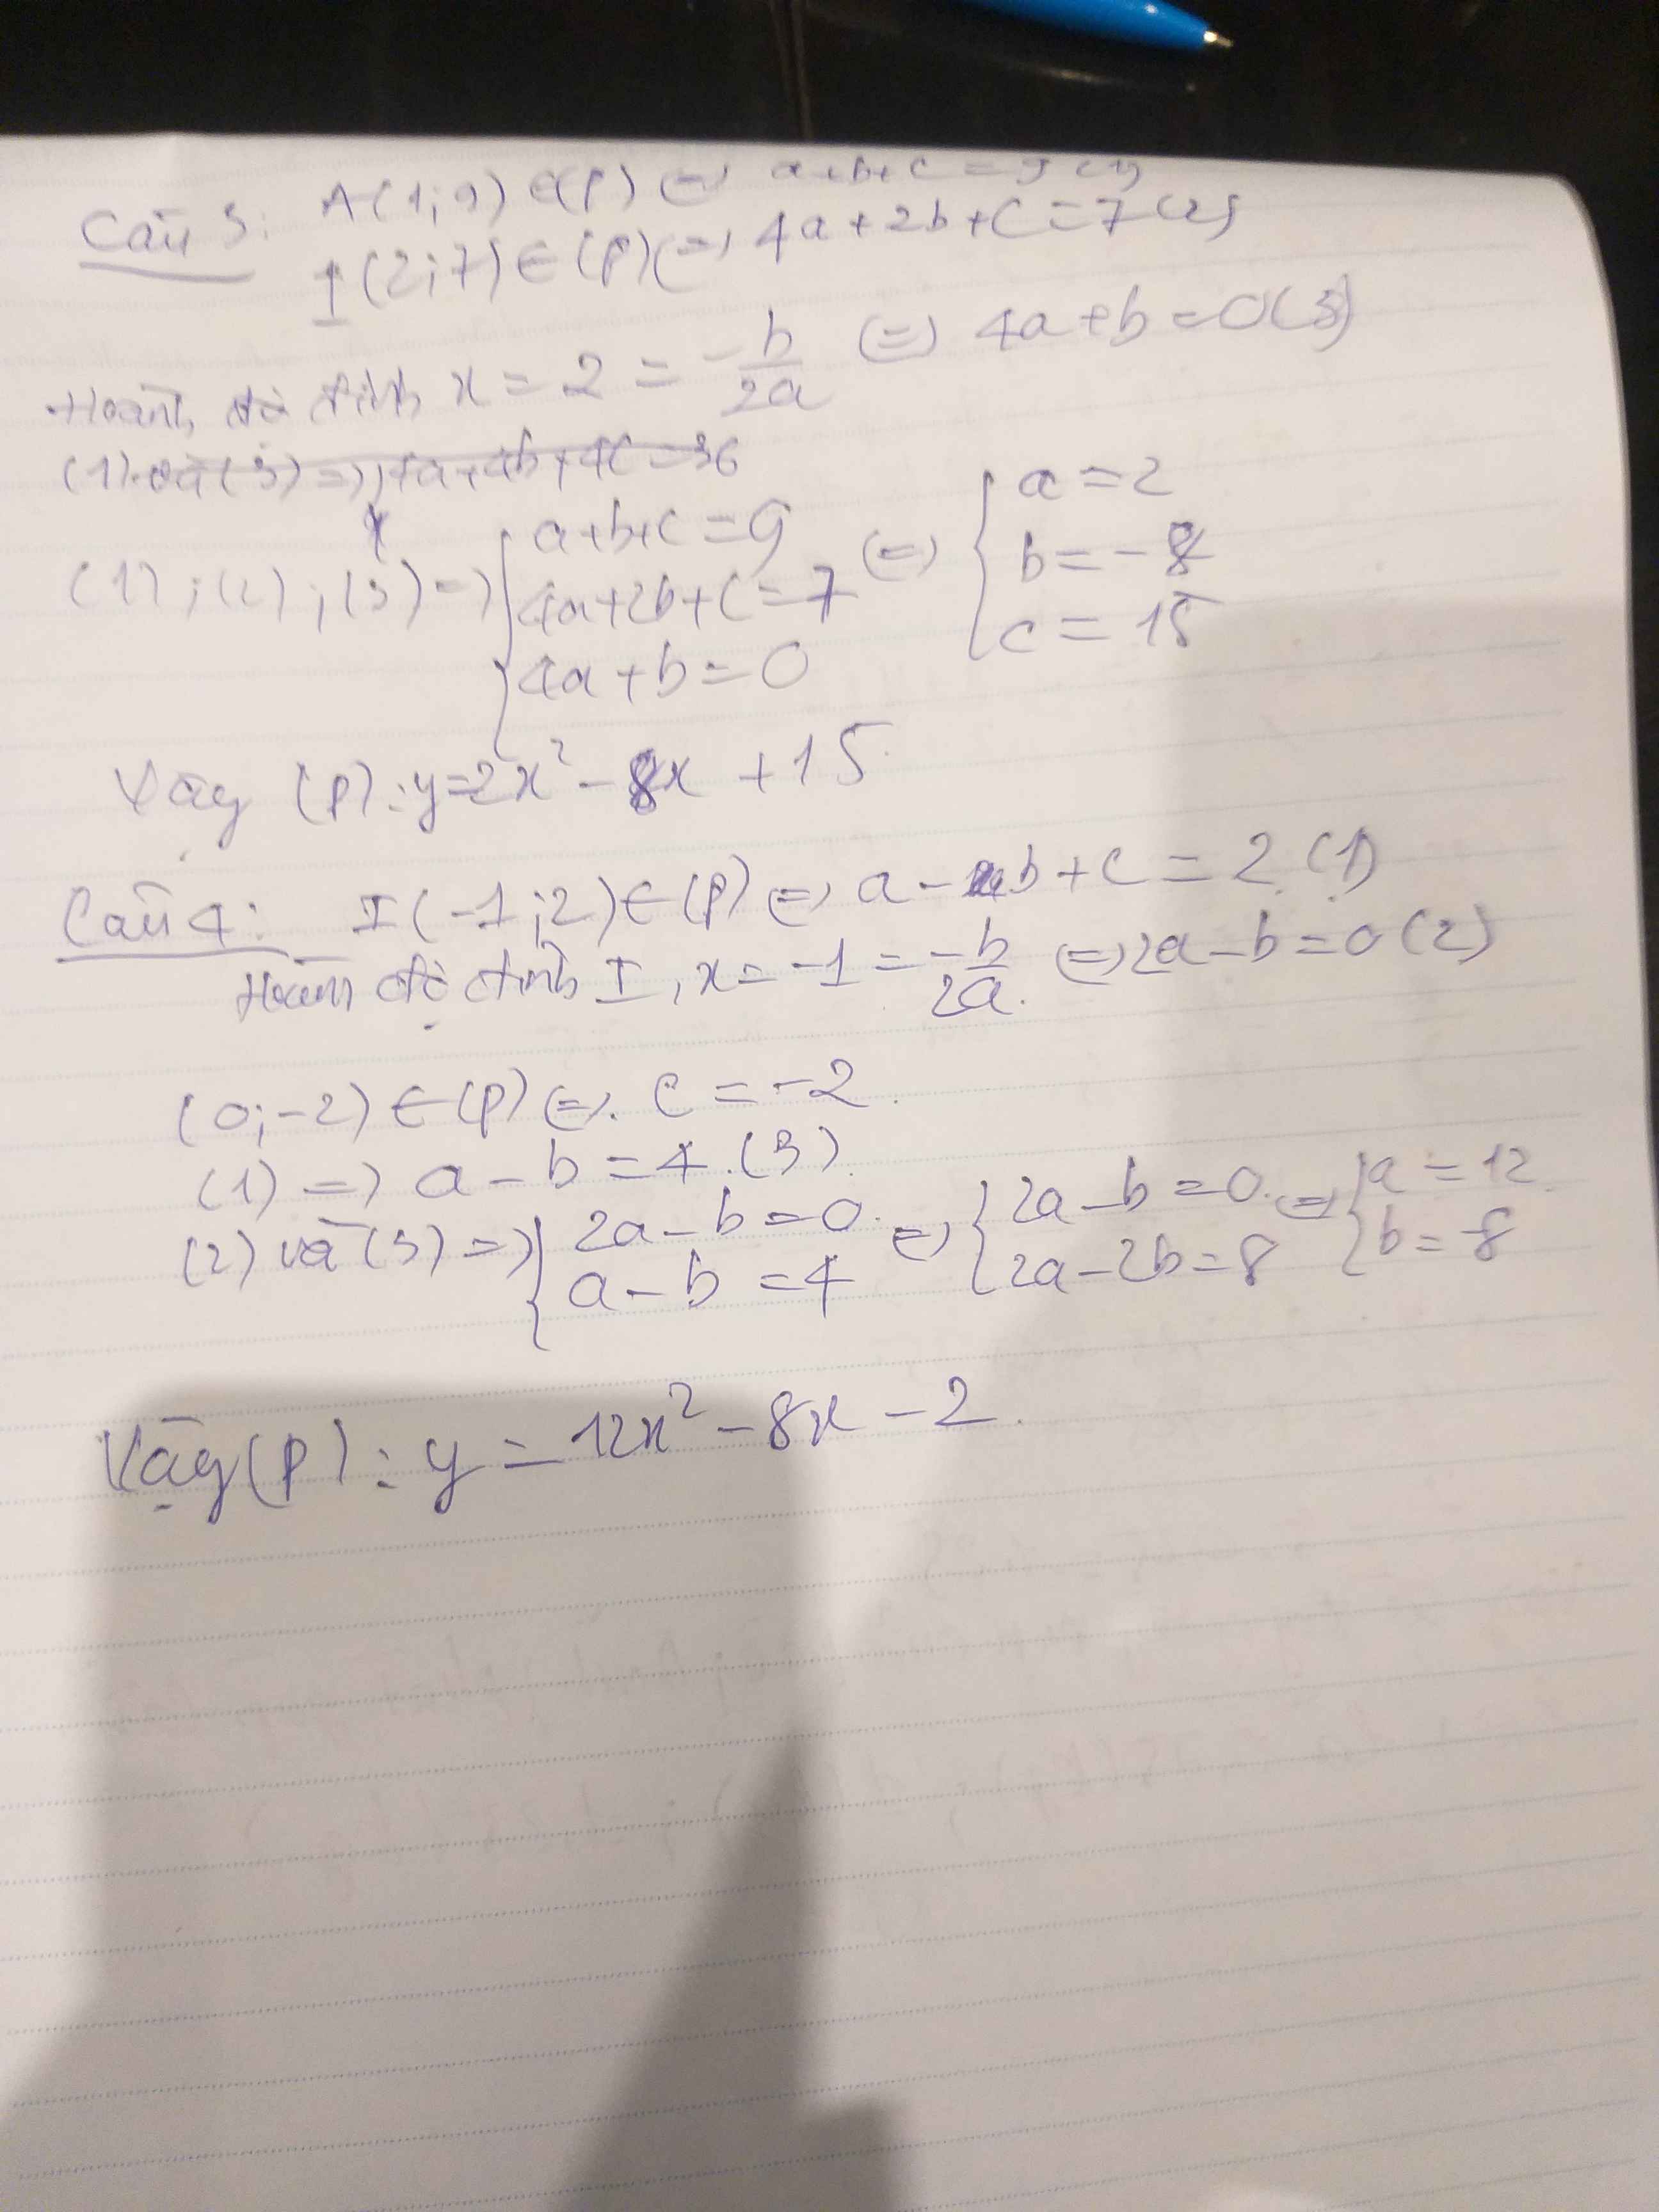 Câu 3: A(1;9) ∈ (P) (=) a+b+c = 9 (1)
I(2;7) ∈ (P) (=) 4a+2b+c=7 (2)
Hoành độ đỉnh x = 2 = -b/2a (=) 4a+b=0 (3)
(1) và (3) =) 4a+4b+4c=36
(1);(2);(3) =) { a+b+c=9 (=) { a=2
4a+2b+c=7 b=-8
4a+b=0 c=15
Vậy (P): y=2x² - 8x + 15.
Câu 4: I(-1;2) ∈ (P) (=) a - b + c = 2 (1)
Hoành độ đỉnh I, x = -1 = -b/2a. (=) 2a-b=0 (2)
(0;-2) ∈ (P) (=). c = -2.
(1) =) a - b = 4. (3).
(2) và (3) =) { 2a-b=0. (=) { 2a-b=0. (=) { a=12.
a-b=4 2a-2b=8 b=-8
Vậy (P): y = 12x² - 8x - 2.